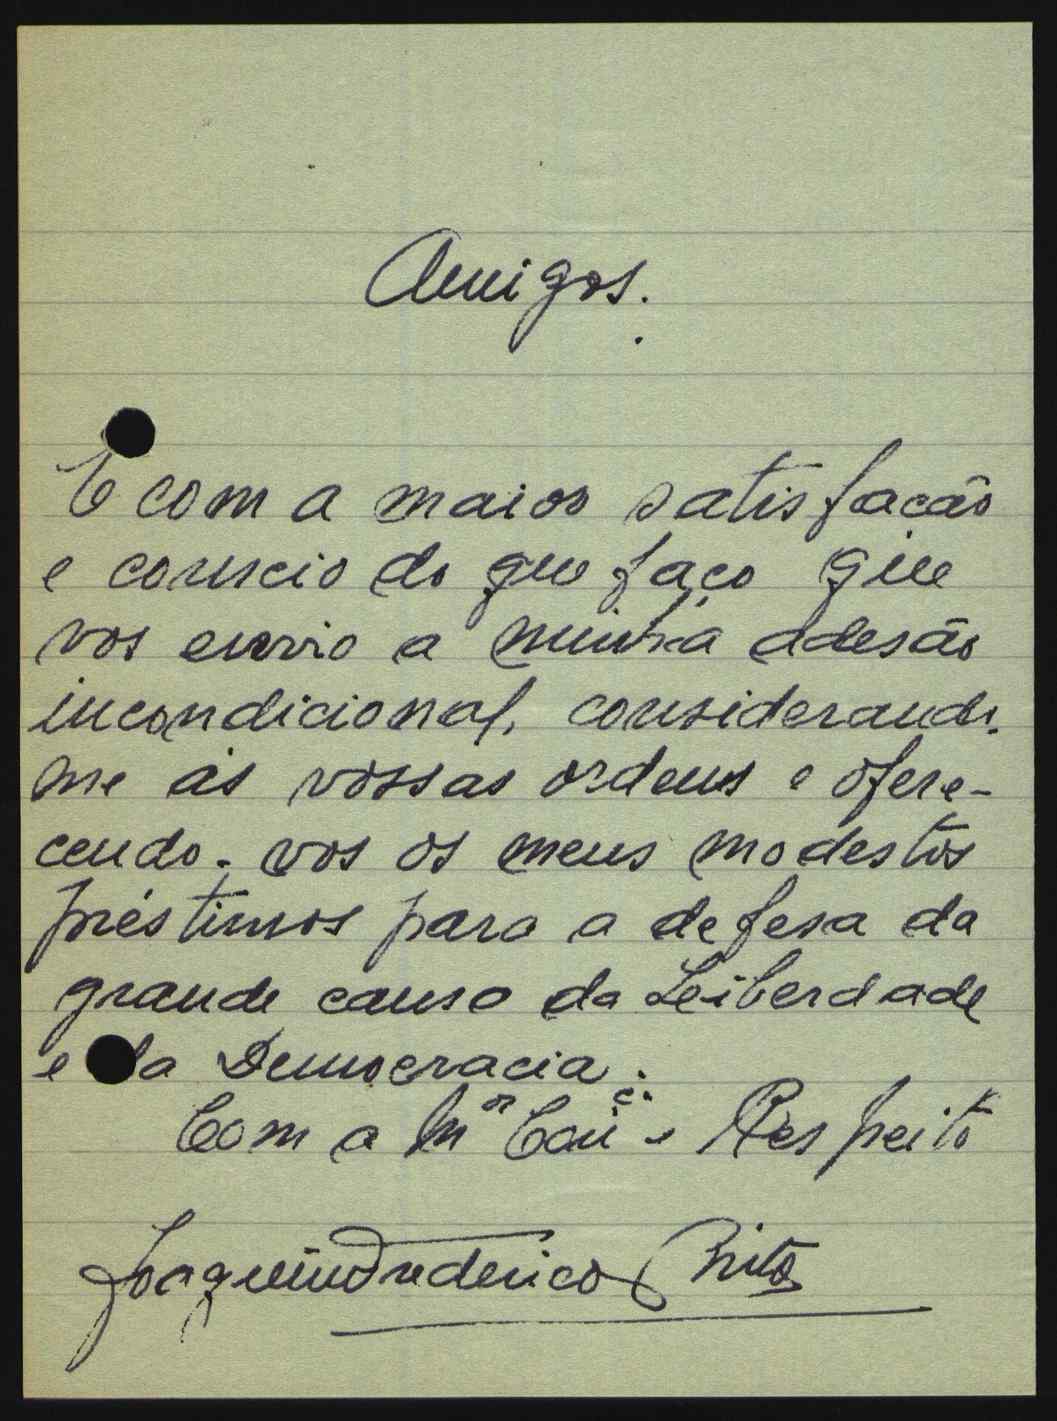 Amigos.
É com a maior satisfacão
e conscio do que faço que
vos envio a minha adesão
incondicional, considerando-
me ás vossas ordens e ofere-
cendo-vos os meus modestos
préstimos para a defesa da
grande causa da Leiberdade
e da Democracia.
Com a Mor Con e Respeito
Joaquim Frederico Brito